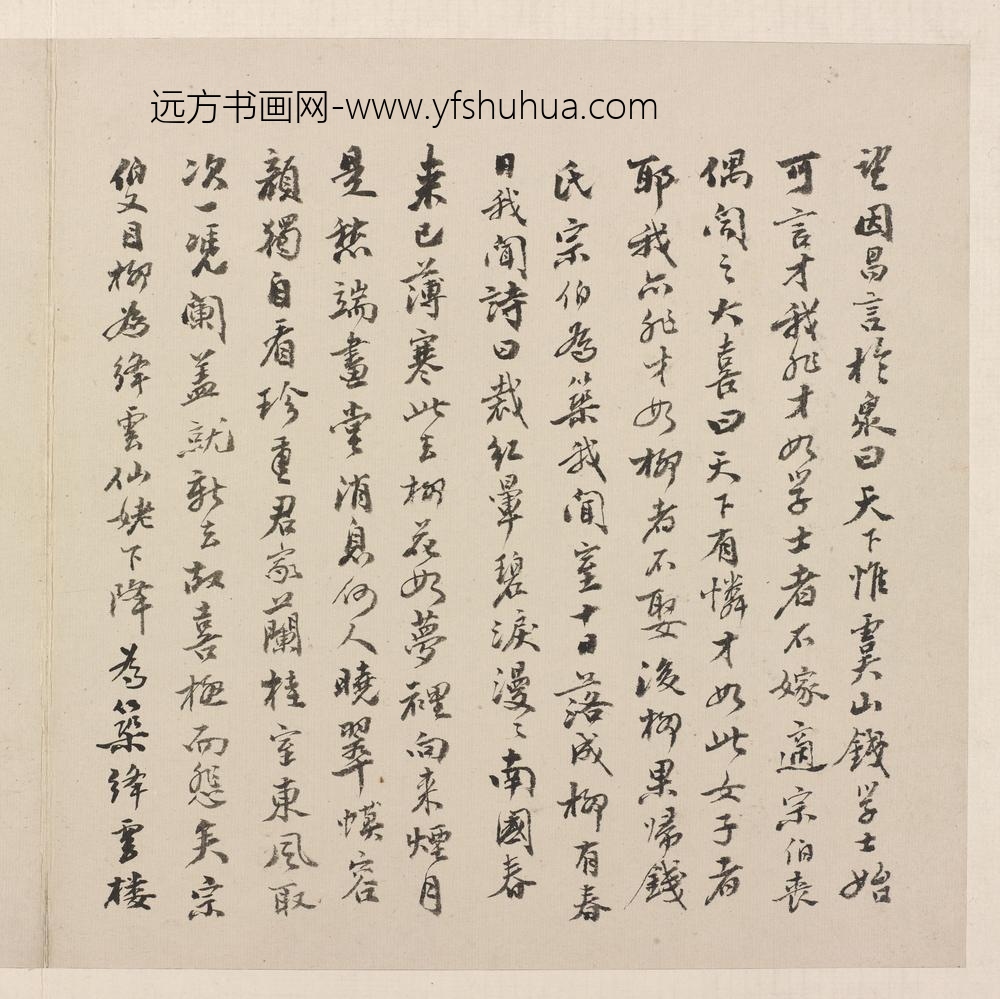 远方书画网-www.yfshuhua.com
望因昌言於众曰天下惟虞山钱学士始
可言才我非才如学士者不嫁適宗伯丧
偶闻之大喜曰天下有憐才如此女子者
耶我亦非才如柳者不娶後柳果歸錢
氏宗伯為築我聞室十日落成柳有春
日我聞詩曰裁红暈碧淚漫〻南國春
来已薄寒此去柳花如夢裡向来煙月
是愁端畫堂消息何人曉翠幙容
顏獨自看珍重君家蘭桂室東風取
次一凭阑盖就新去故喜極而悲矣宗
伯又目柳為绛雲仙姥下降為築绛雲楼